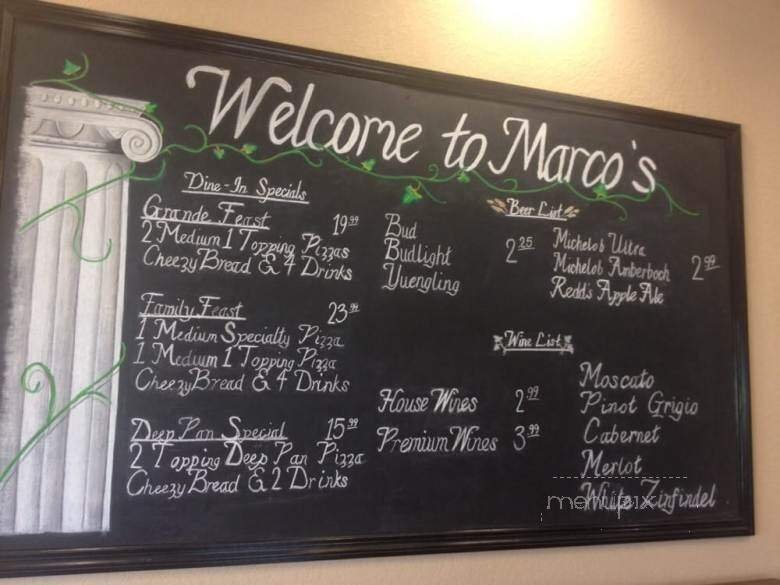 Welcome to Marco's
Dine-In Specials
Grande Feast 19.99
2 Medium 1 Topping Pizzas
Cheezy Bread & 4 Drinks
Family Feast 23.99
1 Medium Specialty Pizza
1 Medium 1 Topping Pizza
Cheezy Bread & 4 Drinks
Deep Pan Special 15.99
2 Topping Deep Pan Pizza
Cheezy Bread & 2 Drinks
Beer List
Bud
Budlight 2.25
Yuengling
Michelob Ultra
Michelob Amberboch 2.99
Redd's Apple Ale
Wine List
House Wines 2.99
Premium Wines 3.99
Moscato
Pinot Grigio
Cabernet
Merlot
White Zinfindel
menupix